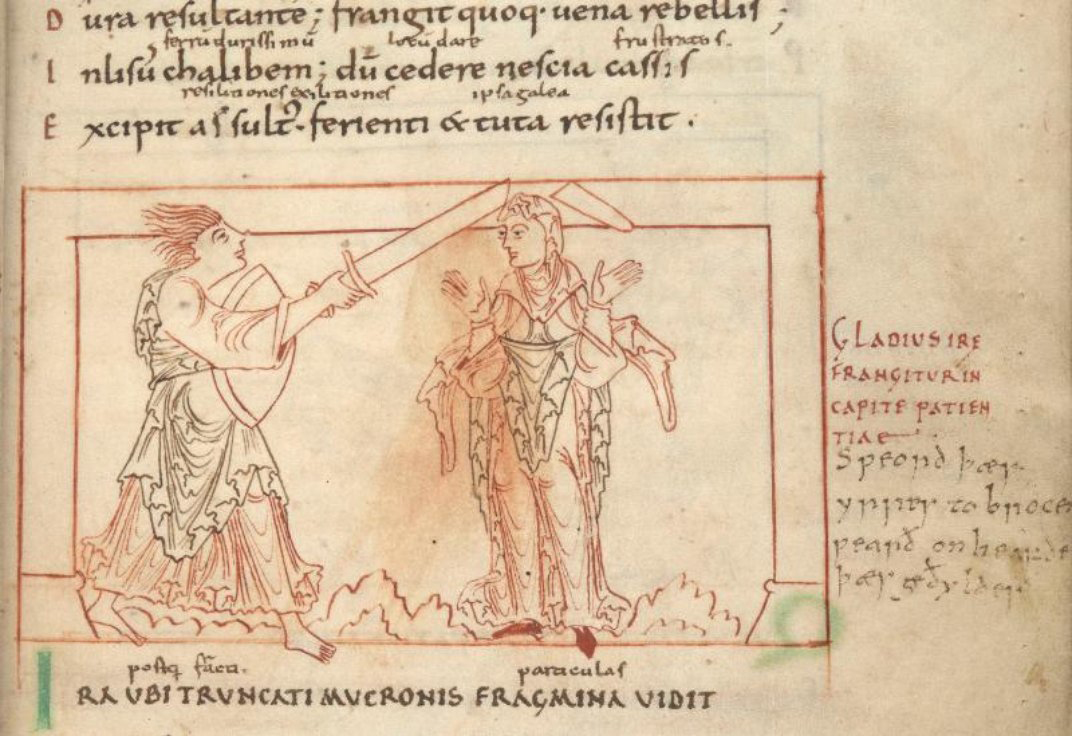 D ura resultante; frangit quoq· uena rebellis ;
ferrū durissimū locū dare frustratos.
I nlisū chalibem; dū cedere nescia cassis
resilitiones exilitiones ipsa galea
E xcipit assult᷒· ferienti & tuta resistit.
GLADIUS IRE
FRANGITUR IN
CAPITE PATIEN
TIAE
Spеord þær
yrres to broce
peard on heaude
þær geðyldes
postq̄ facti. particulas
IRA UBI TRUNCATI MUCRONIS FRAGMINA UIDIT